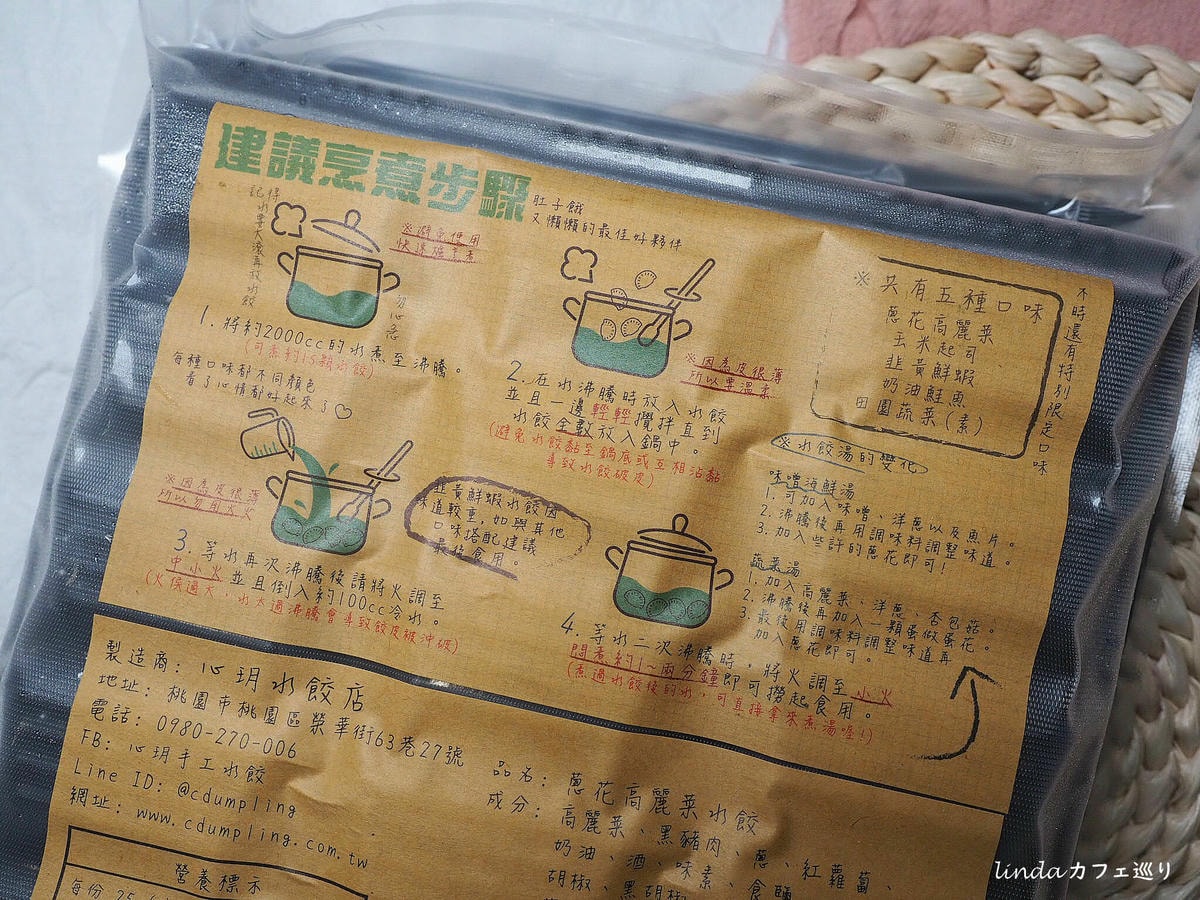 建議烹煮步驟
肚子餓
又懶懶的最佳好夥伴
記得
水要大滾再放水餃
※避免使用
快速爐烹煮
勿心急
1. 將約2000cc的水煮至沸騰。
(可煮約15顆水餃)
每種口味都不同顏色
看了心情都好起來了♡
※因為皮很薄
所以要溫柔
2. 在水沸騰時放入水餃
並且一邊輕輕攪拌直到
水餃全數放入鍋中。
(避免水餃黏至鍋底或互相沾黏
導致水餃破皮)
※因為皮很薄
所以勿用大火
3. 等水再次沸騰後請將火調至
中小火並且倒入約100cc冷水。
(火侯過大,水太過沸騰會導致餃皮被沖破)
韭黃鮮蝦水餃因
味道較重,如與其他
口味搭配建議
最後食用。
4. 等水二次沸騰時,將火調至小火
悶煮約1~兩分鐘即可撈起食用。
(煮過水餃後的水,可直接拿來煮湯喔!)
※共有五種口味
蔥花高麗菜
玉米起司
韭黃鮮蝦
奶油鮭魚
田園蔬菜(素)
不時還有特別限定口味
※水餃湯的變化
味噌海鮮湯
1. 可加入味噌、洋蔥以及魚片。
2. 沸騰後再用調味料調整味道。
3. 加入些許的蔥花即可!
蔬菜湯
1. 加入高麗菜、洋蔥、杏包菇。
2. 沸騰後再加入一顆蛋做蛋花。
3. 最後使用調味料調整味道再
加入蔥花即可。
製造商: 心玥水餃店
地址: 桃園市桃園區榮華街63巷27號
電話: 0980-270-006
FB: 心玥手工水餃
Line ID: @cdumpling
網址: www.cdumpling.com.tw
營養標示
每份 25
品名: 蔥花高麗菜水餃
成分: 高麗菜、黑豬肉、蔥、紅蘿蔔、
奶油、酒、味素、食鹽
胡椒、黑胡椒
lindaカフェ巡り